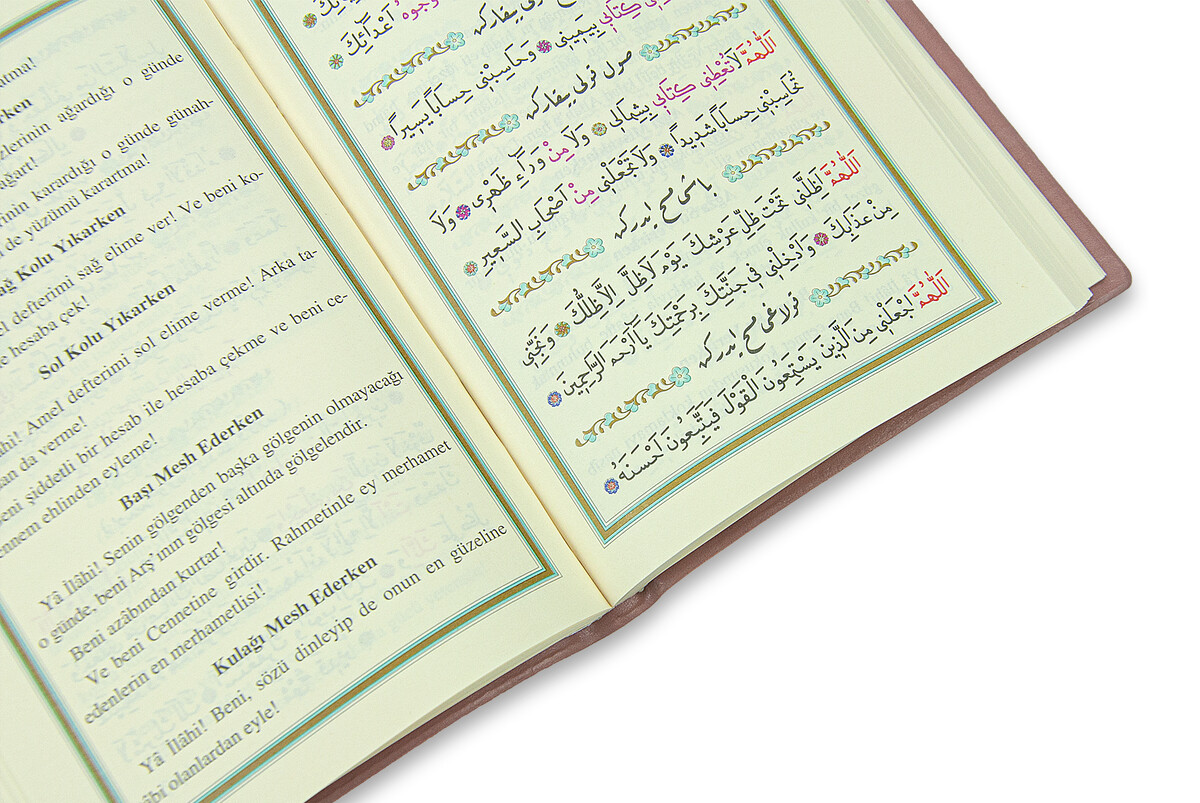 atma!
rken
zlerinin ağardığı o günde
ağart!
rinin karardığı o günde günah-
de yüzümü karartma!
ağ Kolu Yıkarken
el defterimi sağ elime ver! Ve beni ko-
e hesaba çek!
Sol Kolu Yıkarken
hi! Amel defterimi sol elime verme! Arka ta-
an da verme!
eni şiddetli bir hesab ile hesaba çekme ve beni ce-
ennem ehlinden eyleme!
Başı Mesh Ederken
Yâ İlâhi! Senin gölgenden başka gölgenin olmayacağı
o günde, beni Arş'ının gölgesi altında gölgelendir.
Beni azâbından kurtar!
Ve beni Cennetine girdir. Rahmetinle ey merhamet
edenlerin en merhametlisi!
Kulağı Mesh Ederken
Yâ İlâhi! Beni, sözü dinleyip de onun en güzeline
âbi olanlardan eyle!
اَعْدَٓائِكَ
كِتَاب۪ي بِيَم۪ين۪ي وَحَاسِبْن۪ي حِسَابًا يَس۪يرًا
صول قولی ییقارکن
اَللّٰهُمَّ لَا تُعْطِن۪ي كِتَاب۪ي بِشِمَال۪ي وَلَا مِنْ وَرَٓاءِ ظَهْر۪ي وَلَا
تُحَاسِبْن۪ي حِسَابًا شَد۪يدًا وَلَا تَجْعَلْن۪ي مِنْ اَصْحَابِ السَّع۪يرِ
باشی مسح ایدرکن
اَللّٰهُمَّ اَظِلَّن۪ي تَحْتَ ظِلِّ عَرْشِكَ يَوْمَ لَا ظِلَّ اِلَّا ظِلُّكَ وَنَجِّن۪ي
مِنْ عَذَابِكَ وَاَدْخِلْن۪ي ف۪ي جَنَّتِكَ بِرَحْمَتِكَ يَٓا اَرْحَمَ الرَّاحِم۪ينَ
قولاغی مسح ایدرکن
اَللّٰهُمَّ اجْعَلْن۪ي مِنَ الَّذ۪ينَ يَسْتَمِعُونَ الْقَوْلَ فَيَتَّبِعُونَ اَحْسَنَهُ